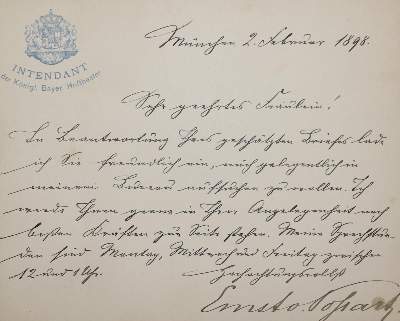 INTENDANT
der Königl. Bayer. Hoftheater
München 2. Februar 1898.
Sehr geehrtes Fräulein!
In Beantwortung Ihres geschätzten Briefes lade
ich Sie freundlich ein, mich gelegentlich in
meinem Bureau aufsuchen zu wollen. Ich
werde Ihnen gerne in Ihrer Angelegenheit nach
besten Kräften zur Seite stehen. Meine Sprechstun-
den sind Montag, Mittwoch und Freitag zwischen
12 und 1 Uhr.
Hochachtungsvollst
Ernst v. Possart.